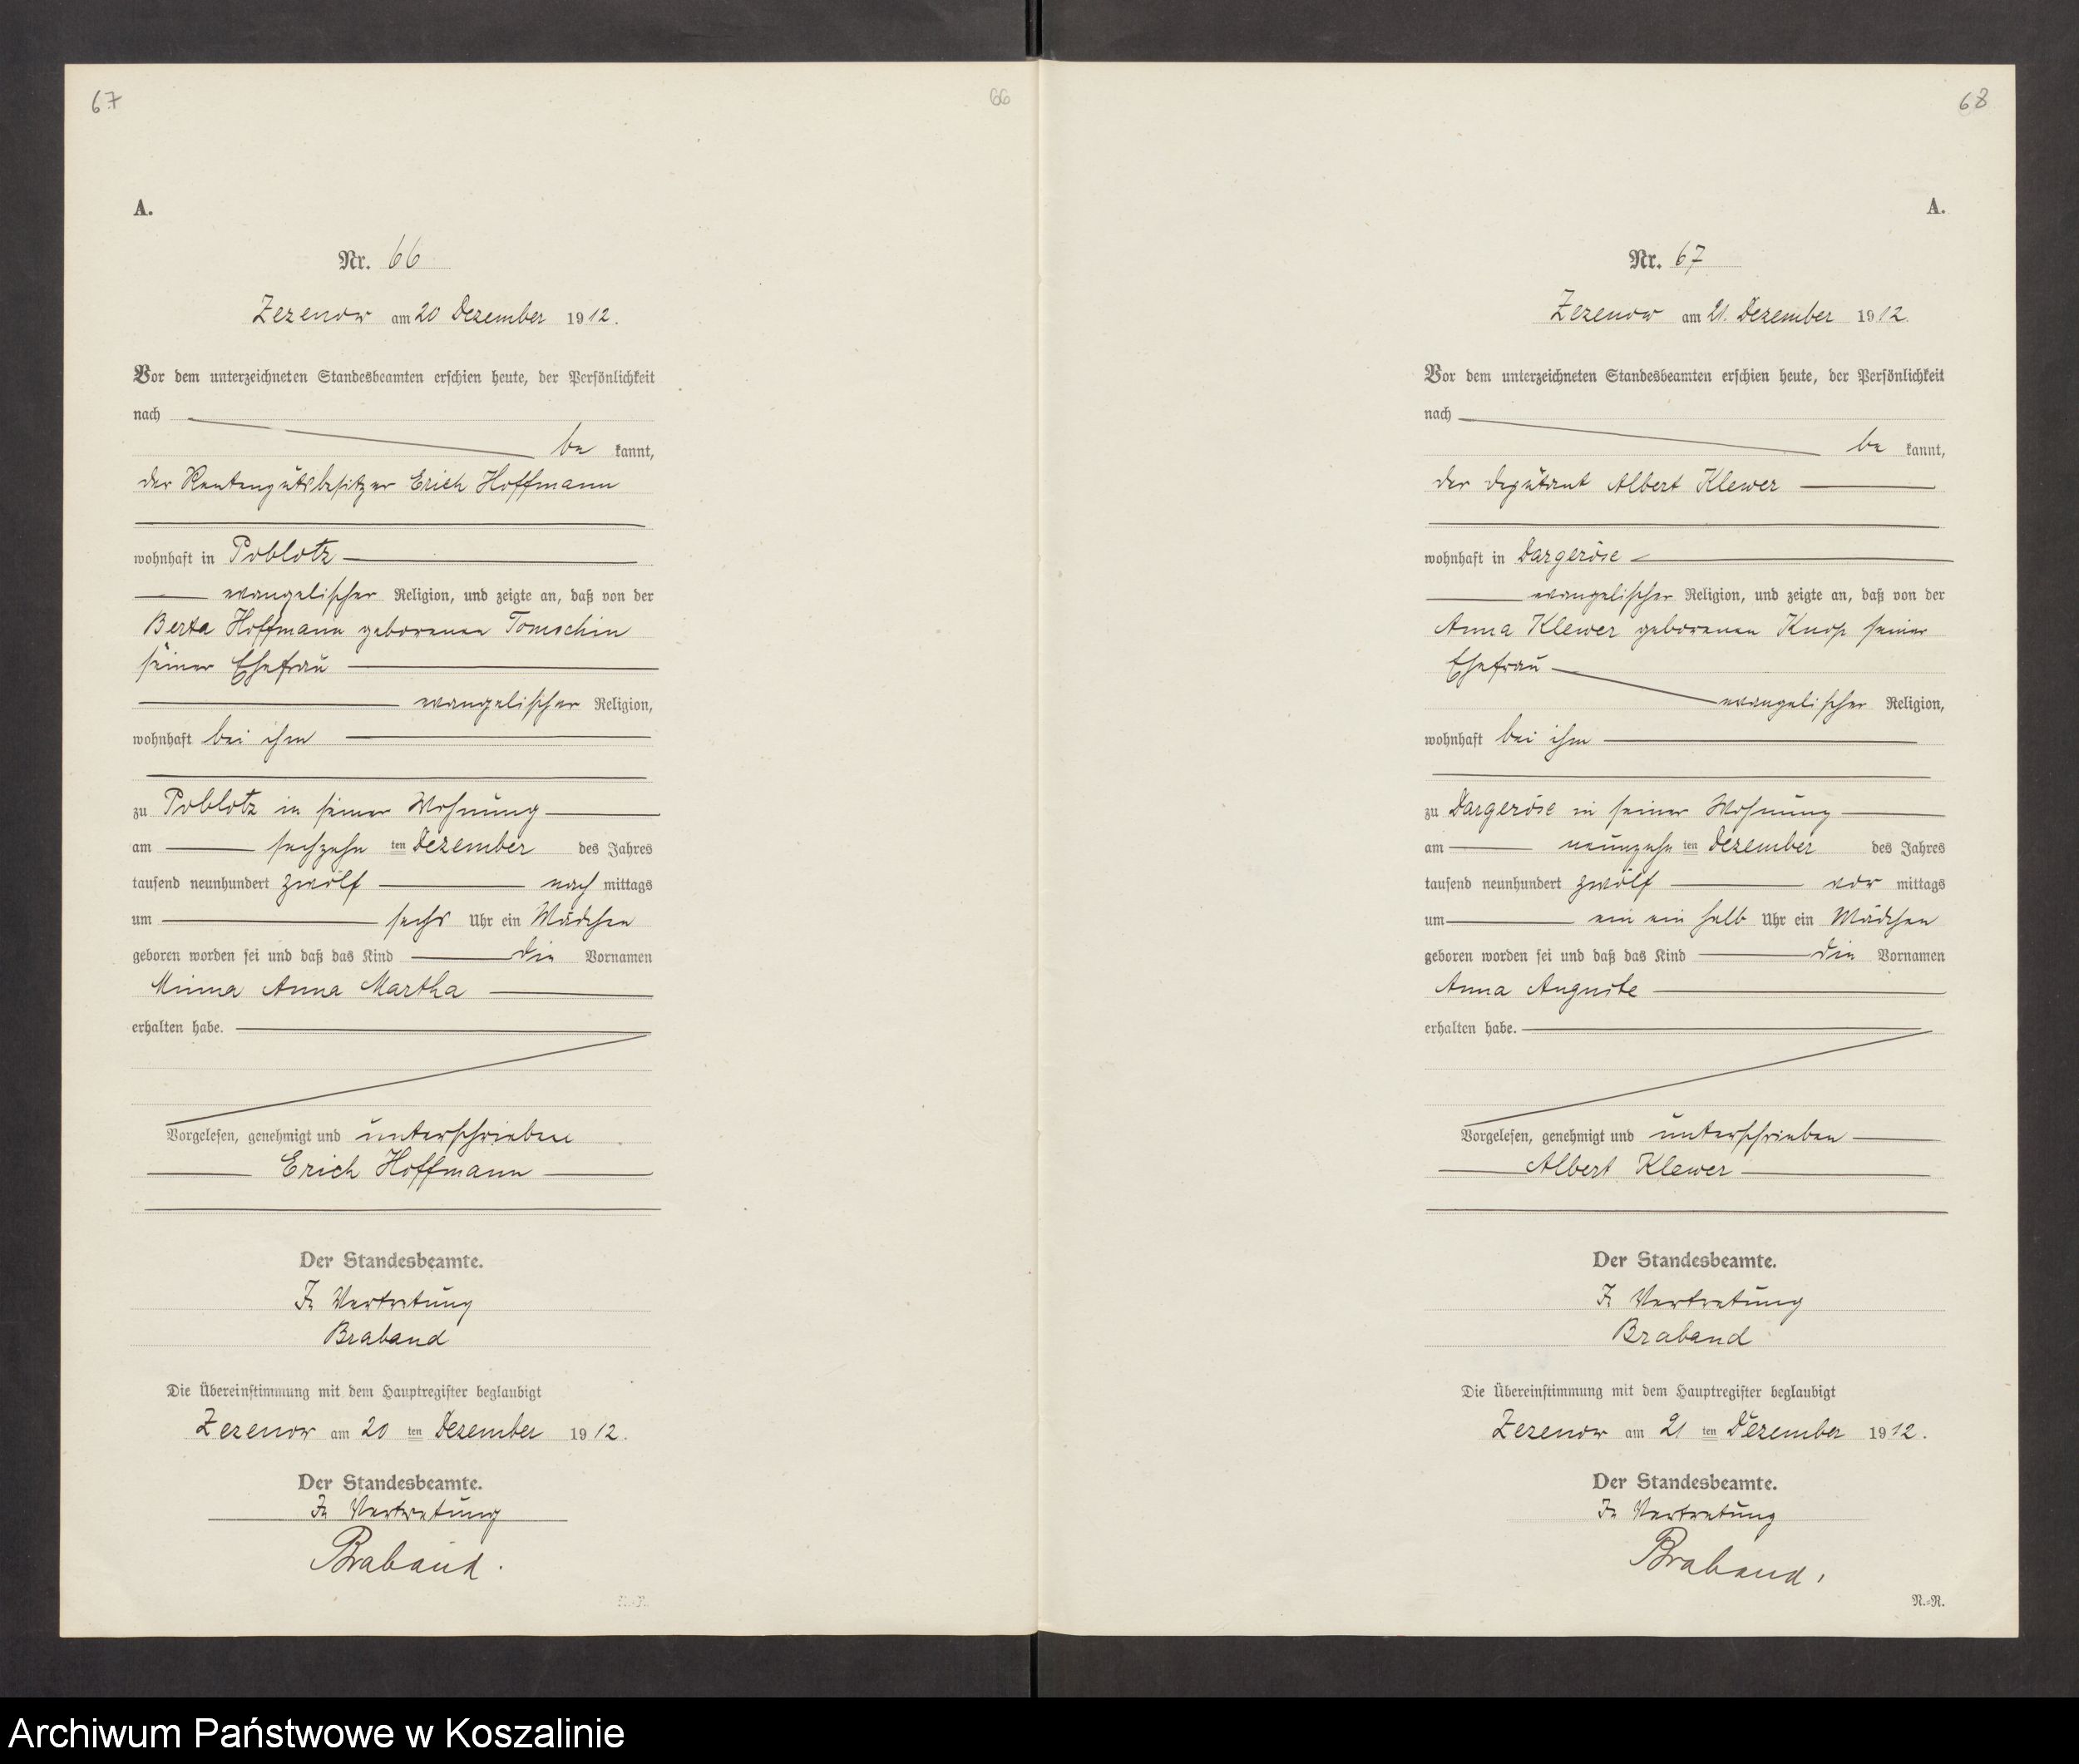 67
66
A.
Nr. 66
Zezenow am 20 Dezember 1912.
Vor dem unterzeichneten Standesbeamten erschien heute, der Persönlichkeit
nach
be kannt,
der Rentengutsbesitzer Erich Hoffmann
wohnhaft in Poblotz
evangelischer Religion, und zeigte an, daß von der
Berta Hoffmann geborenen Tomschin
seiner Ehefrau
evangelischer Religion,
wohnhaft bei ihm
zu Poblotz in seiner Wohnung
am sechzehn ten Dezember des Jahres
tausend neunhundert zwölf nach mittags
um sechs Uhr ein Mädchen
geboren worden sei und daß das Kind die Vornamen
Minna Anna Martha
erhalten habe.
Vorgelesen, genehmigt und unterschrieben
Erich Hoffmann
Der Standesbeamte.
In Vertretung
Braband
Die Übereinstimmung mit dem Hauptregister beglaubigt
Zezenow am 20 ten Dezember 1912.
Der Standesbeamte.
In Vertretung
Braband.
N.=R.
68
A.
Nr. 67
Zezenow am 21. Dezember 1912.
Vor dem unterzeichneten Standesbeamten erschien heute, der Persönlichkeit
nach
be kannt,
der Deputant Albert Klewer
wohnhaft in Dargeröse
evangelischer Religion, und zeigte an, daß von der
Anna Klewer geborenen Knop seiner
Ehefrau
evangelischer Religion,
wohnhaft bei ihm
zu Dargeröse in seiner Wohnung
am neunzehn ten Dezember des Jahres
tausend neunhundert zwölf vor mittags
um ein ein halb Uhr ein Mädchen
geboren worden sei und daß das Kind die Vornamen
Anna Auguste
erhalten habe.
Vorgelesen, genehmigt und unterschrieben
Albert Klewer
Der Standesbeamte.
In Vertretung
Braband
Die Übereinstimmung mit dem Hauptregister beglaubigt
Zezenow am 21 ten Dezember 1912.
Der Standesbeamte.
In Vertretung
Braband.
N.=R.
Archiwum Państwowe w Koszalinie